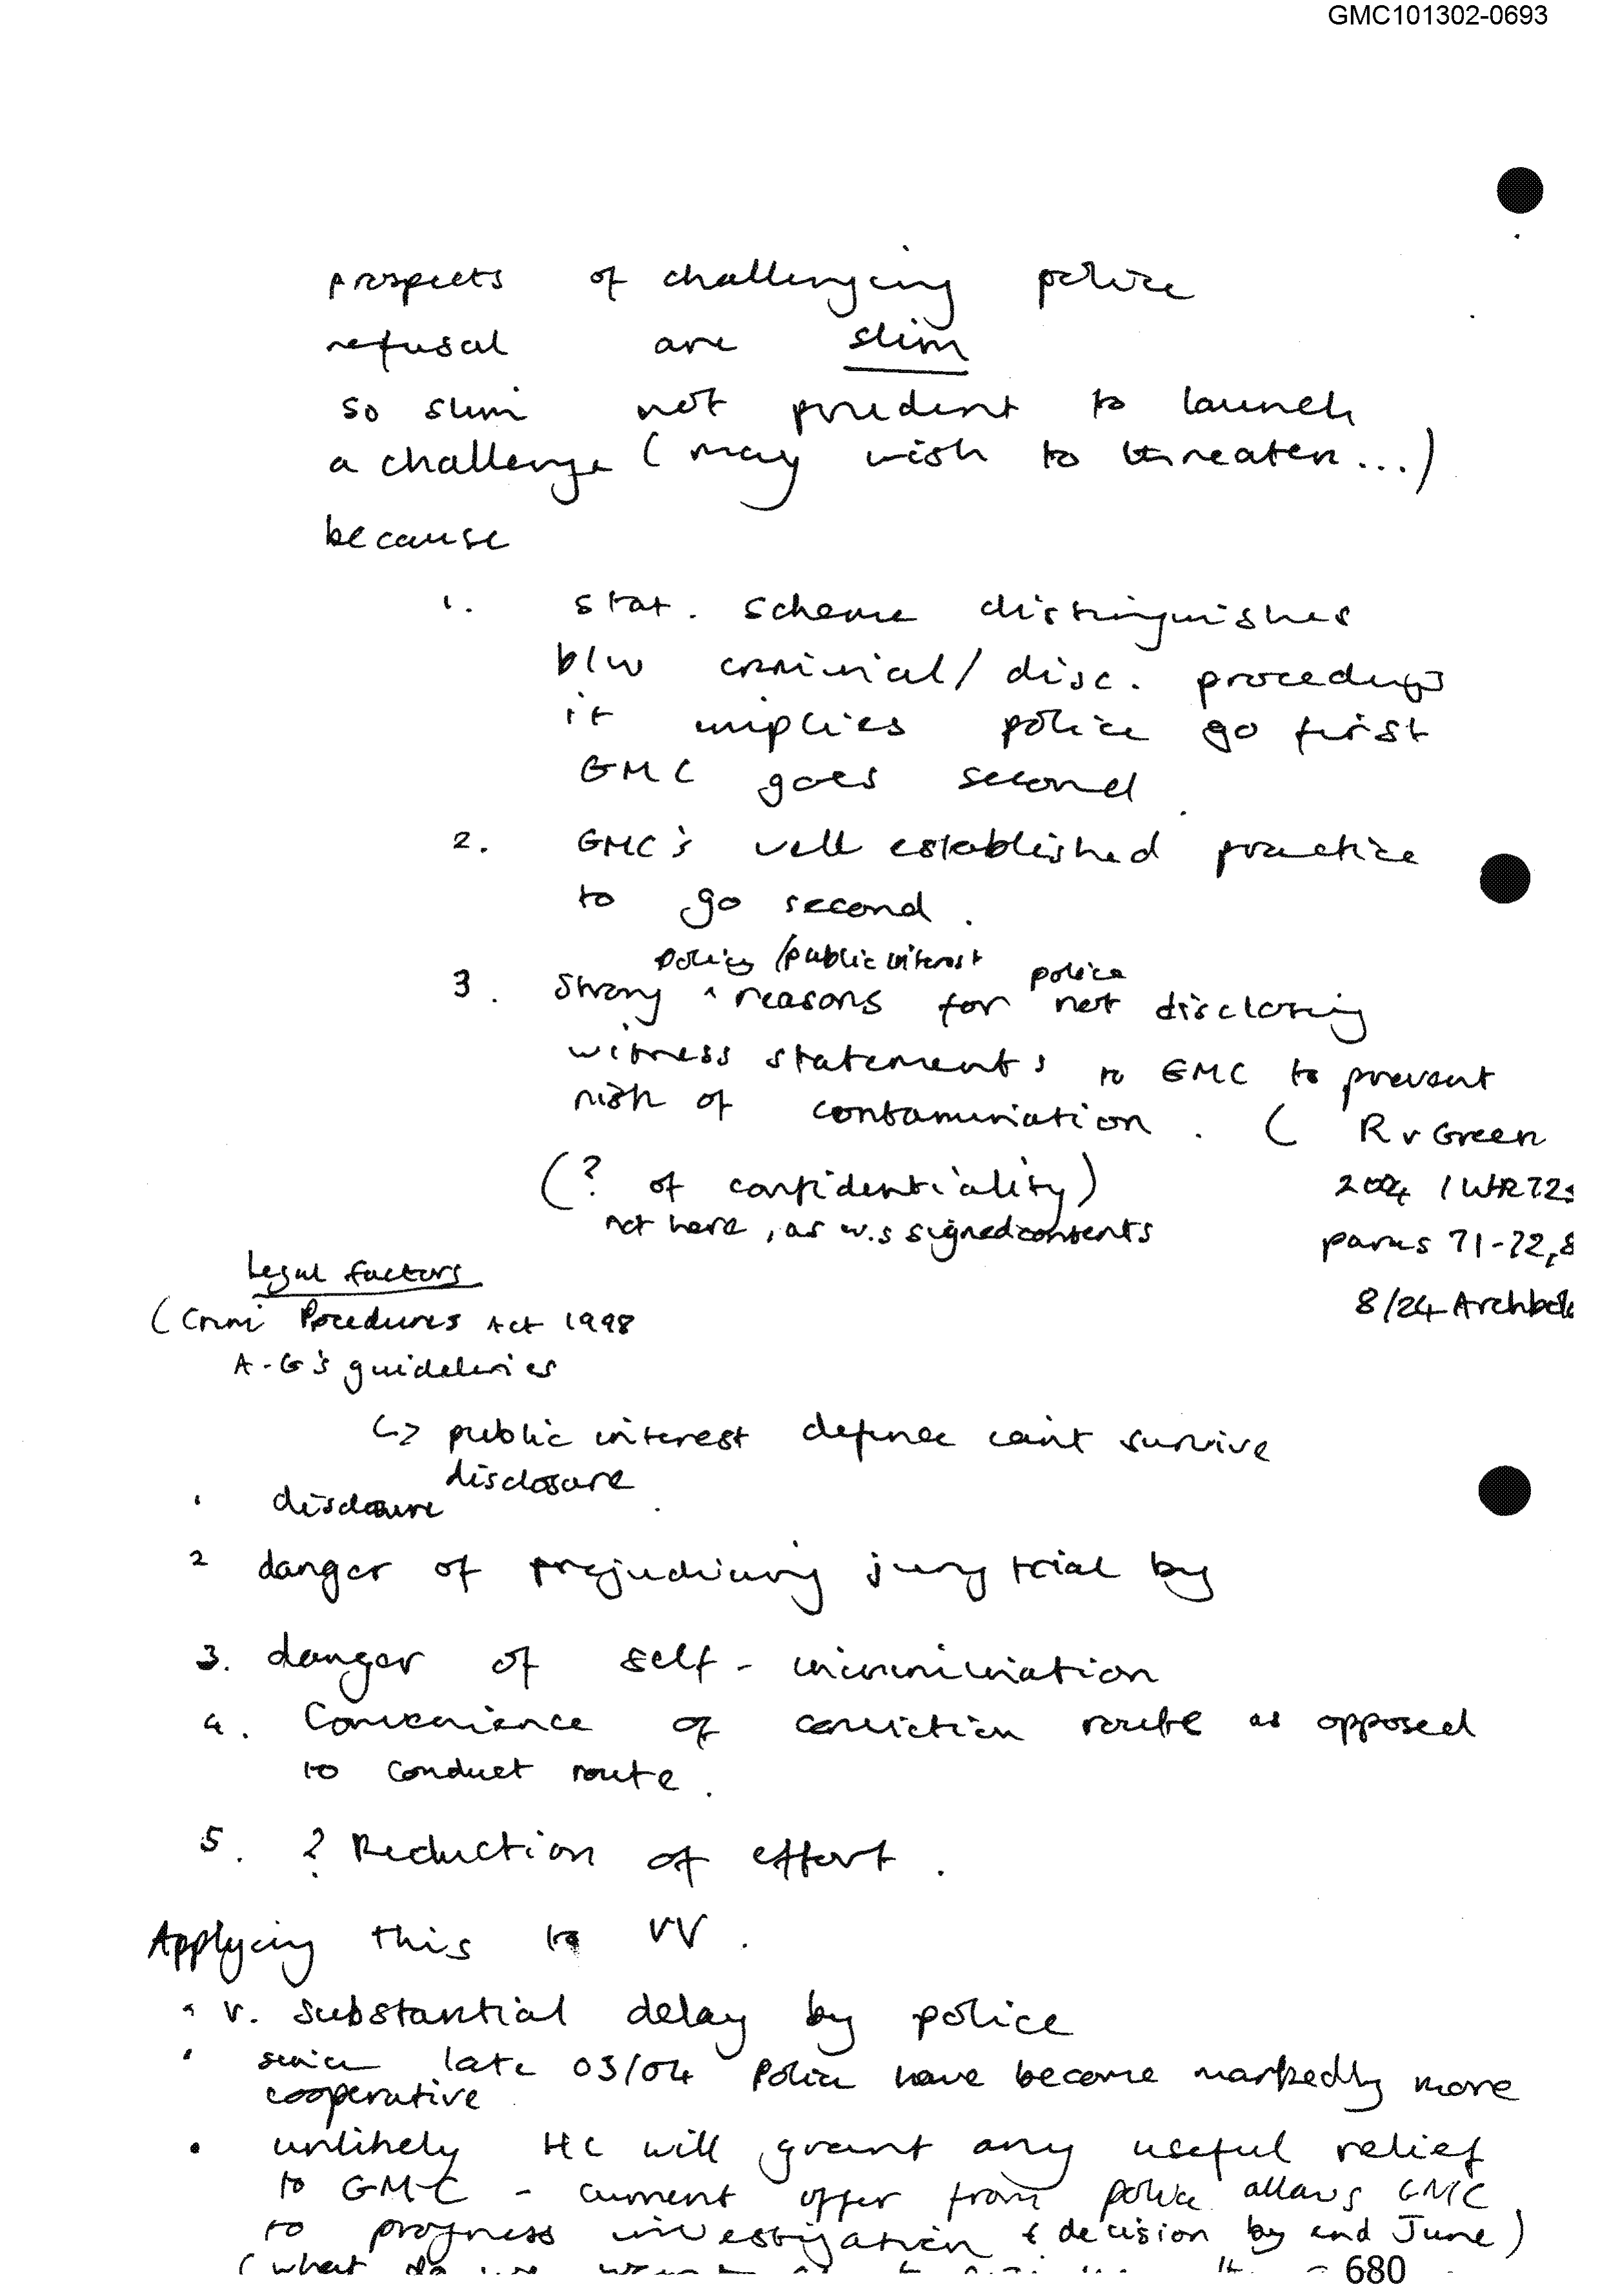 GMC101302-0693
prospects of challenging police
refusal are slim
so slim not prudent to launch
a challenge (may wish to threaten...)
because
1. stat. scheme distinguishes
b/w criminal/disc. procedures
it implies police go first
GMC goes second.
2. GMC's well established practice
to go second.
policy/public interest police
3. Strong ^ reasons for not disclosing
witness statements to GMC to prevent
risk of contamination. ( R v Green
(? of confidentiality) 2004 1 WLR 725
not here, as w.s signed consents paras 71-72, 8
Legal factors 8/24 Archbol
(Crim Procedures Act 1998
A-G's guidelines
↳ public interest defence can't survive
disclosure.
1 disclosure
2 danger of prejudicing jury trial by
3. danger of self-incrimination
4. Convenience of conviction route as opposed
to conduct route.
5. ? Reduction of effort.
Applying this to VV.
• v. substantial delay by police
• since late 03/04 Police have become markedly more
cooperative
• unlikely HC will grant any useful relief
to GMC - current offer from police allows GMC
to progress investigation & decision by end June)
(what do we want
680